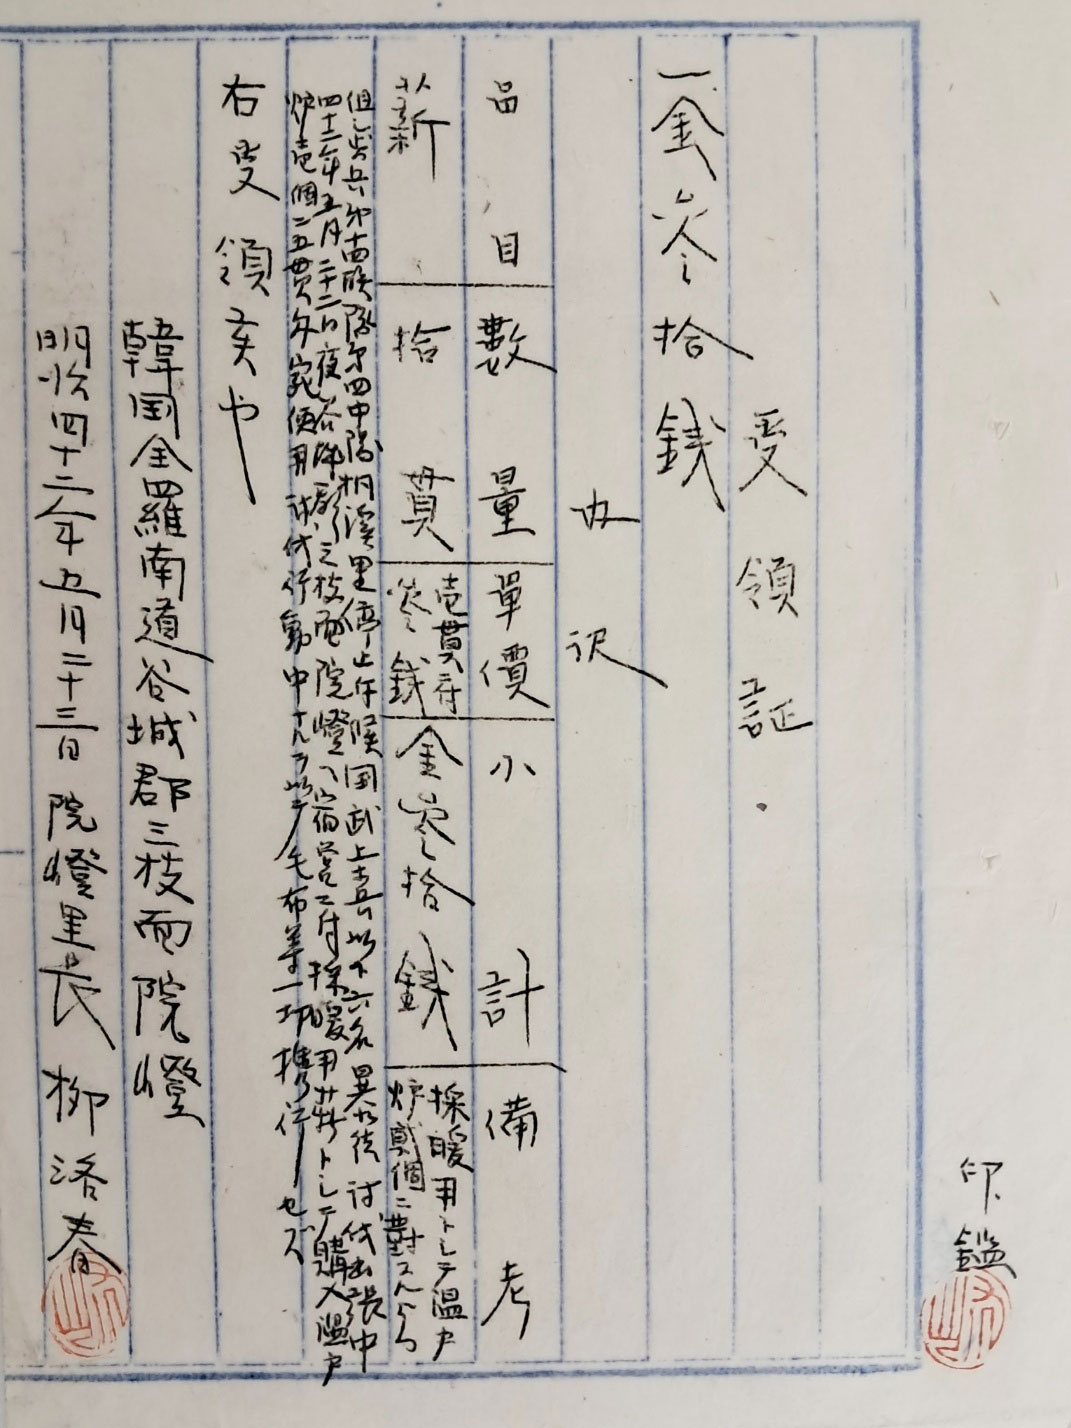 印鑑
受領証
一金參拾銭
内訳
品目 數量 單價 小計 備考
薪 拾貫 壱貫ニ付參銭 金參拾銭 採暖用トシテ温戸炉貳個ニ對スルモノ
但歩兵第 聯隊第四中隊桐溪里停止斥候国武上等兵以下六名暴徒討伐出張中
四十二年五月二十二日夜谷城郡三枝面院燈ヘ宿営ニ付採暖用薪トシテ購入温戸
炉壱個ニ五貫匁宛使用討伐行動中ナルヲ以テ毛布等一切携行セズ
右受領候也
韓国全羅南道谷城郡三枝面院燈
明治四十二年五月二十三日 院燈里長 柳洛春